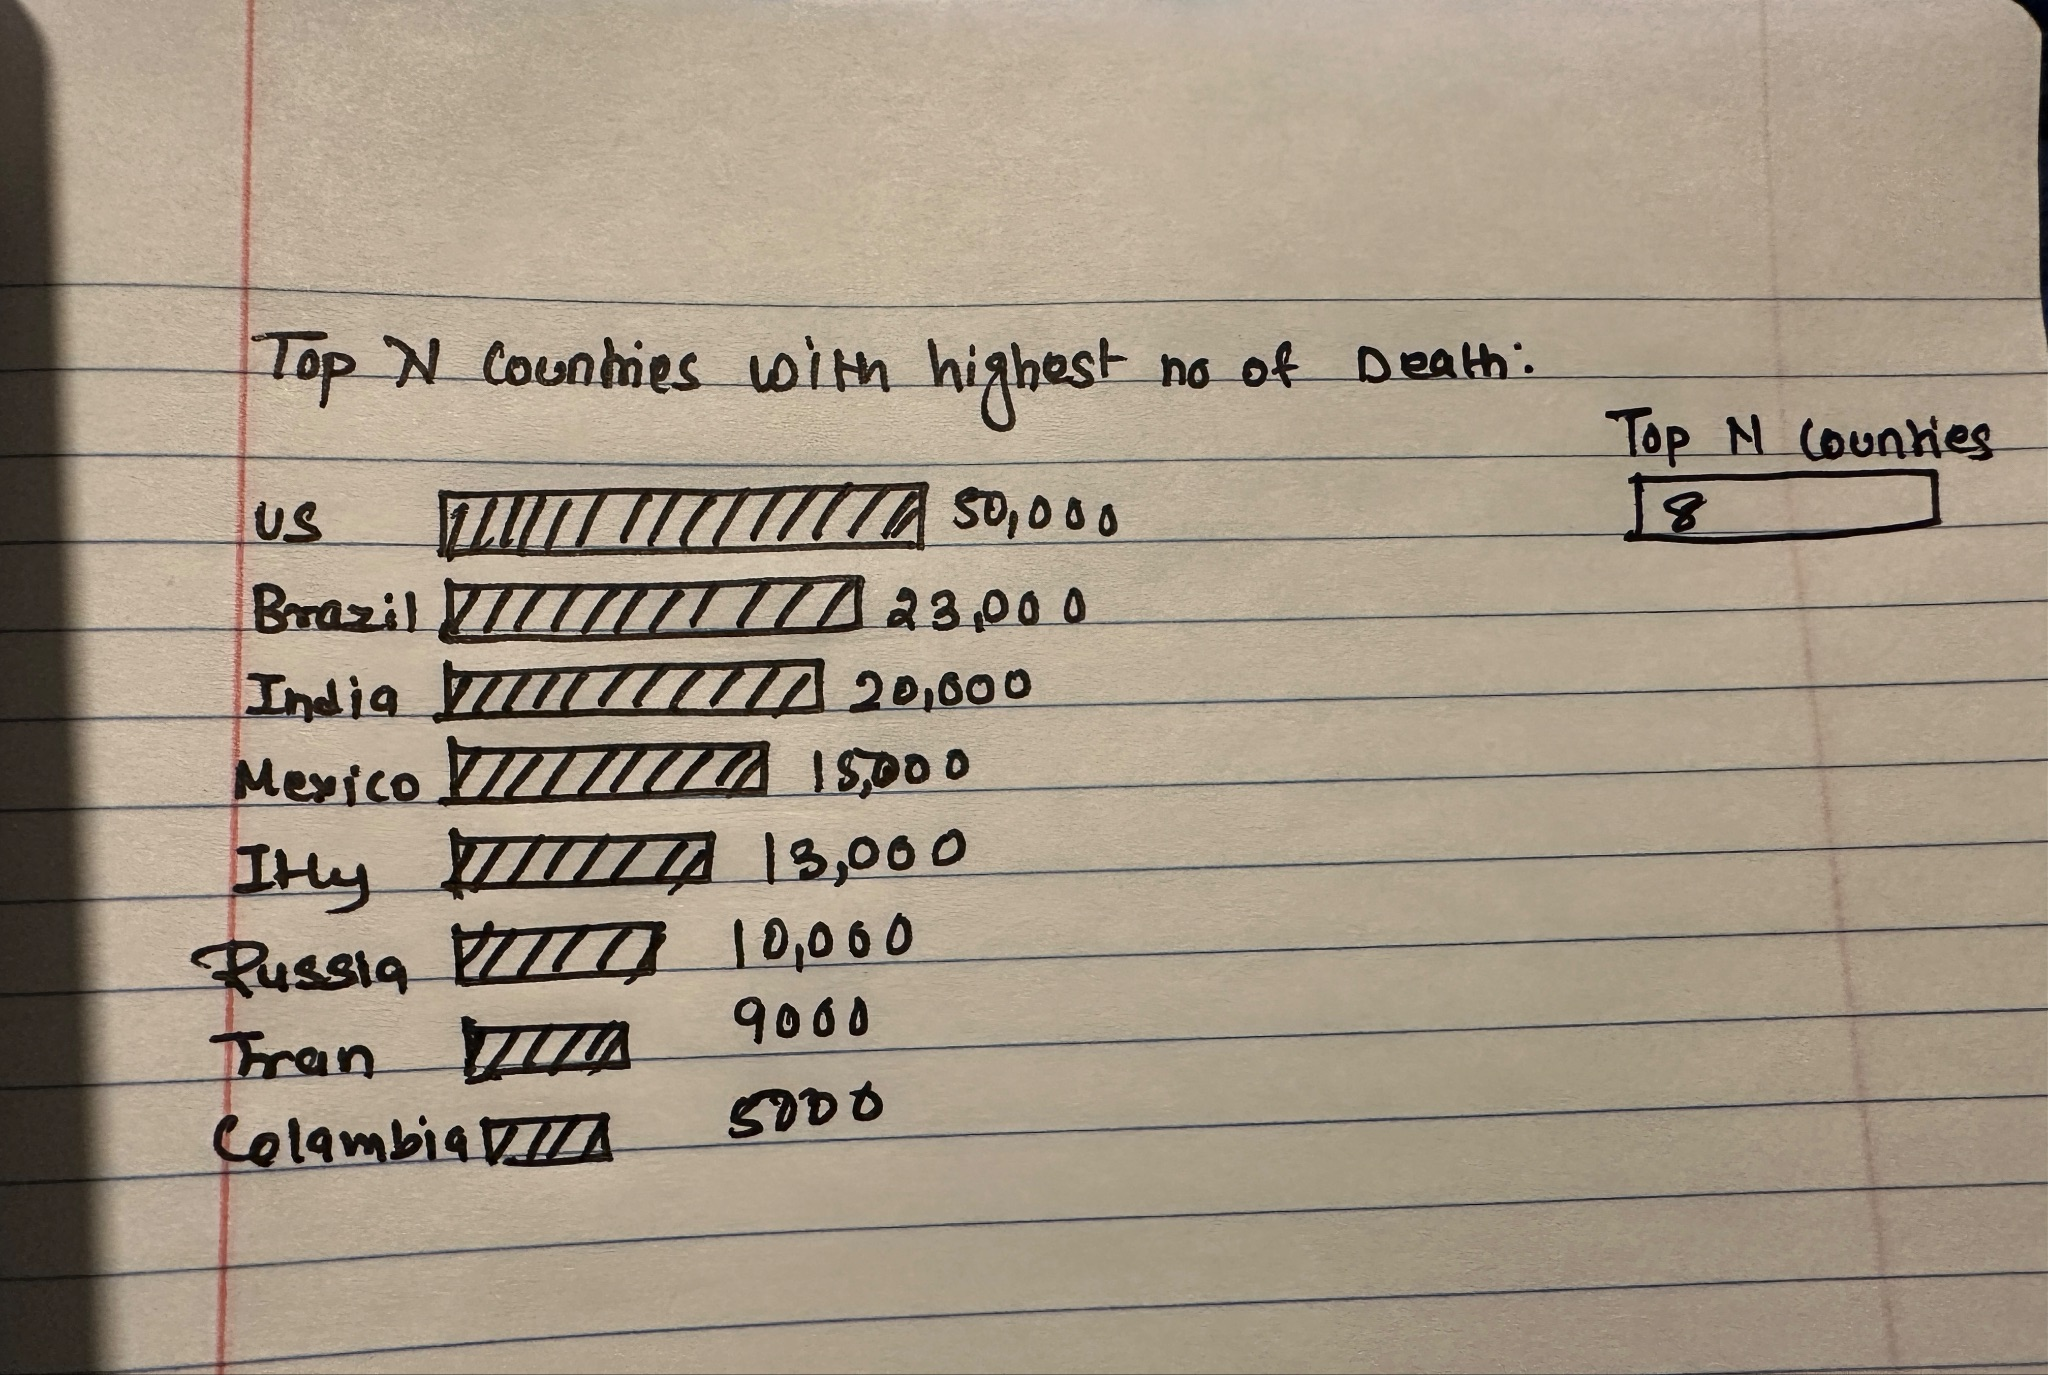 Top N Countries with highest no of Death:
Top N Countries
8
US 50,000
Brazil 23,000
India 20,000
Mexico 15,000
Itly 13,000
Russia 10,000
Iran 9000
Colambia 5000